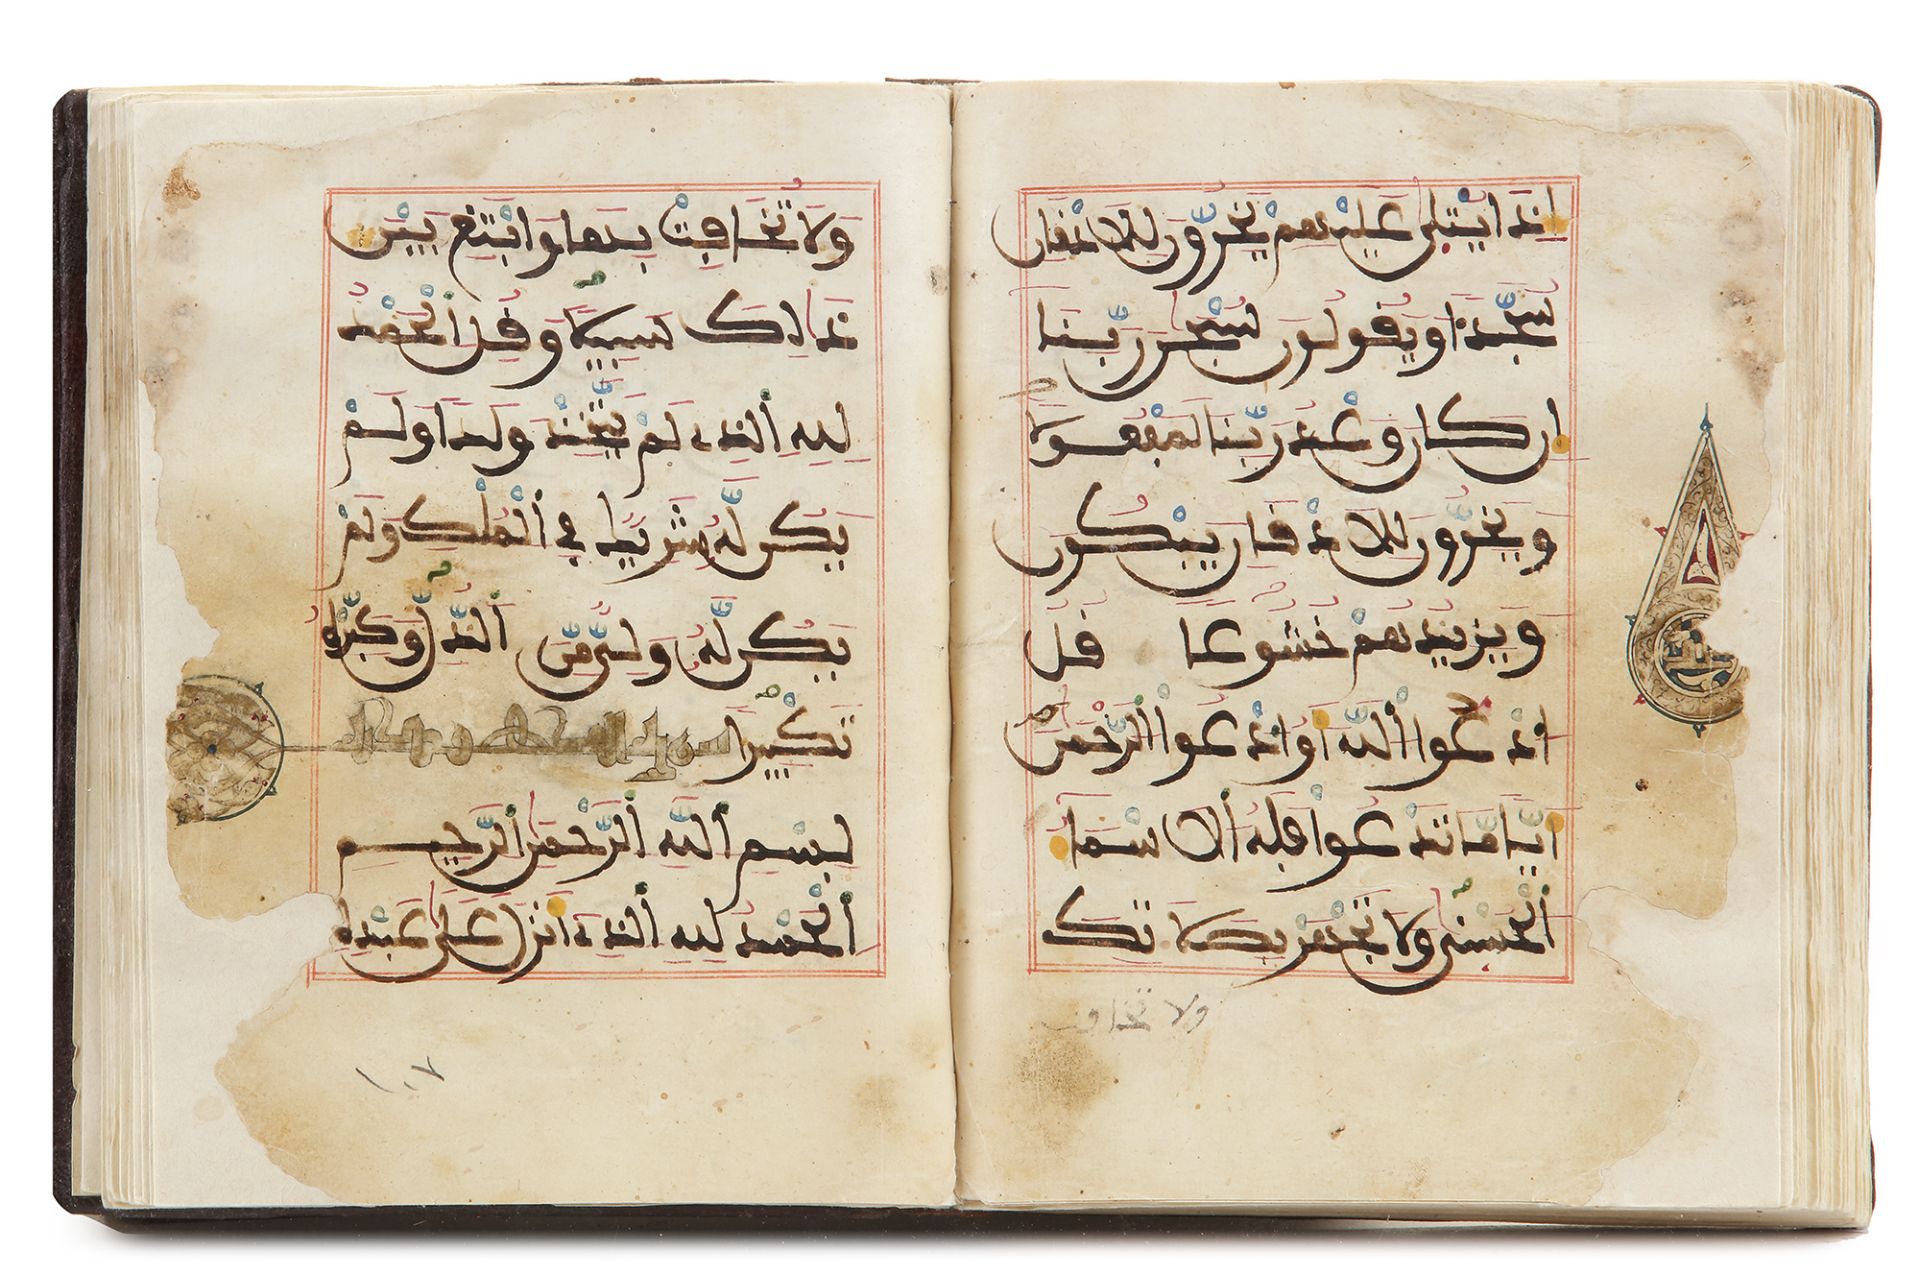 إذا يتلى عليهم يخرون للاذقان
سجدا ويقولون سبحن ربنا
ان كان وعد ربنا لمفعولا
ويخرون للاذقان يبكون
ويزيدهم خشوعا قل
ادعوا الله او ادعوا الرحمن
ايا ما تدعوا فله الاسما
الحسنى ولا تجهر بصلاتك
ولا تخافت
ولا تخافت بها وابتغ بين
ذلك سبيلا وقل الحمد
لله الذي لم يتخذ ولدا ولم
يكن له شريك في الملك ولم
يكن له ولي من الذل وكبره
تكبيرا سورة الكهف
بسم الله الرحمن الرحيم
الحمد لله الذي انزل على عبده
١٠٧